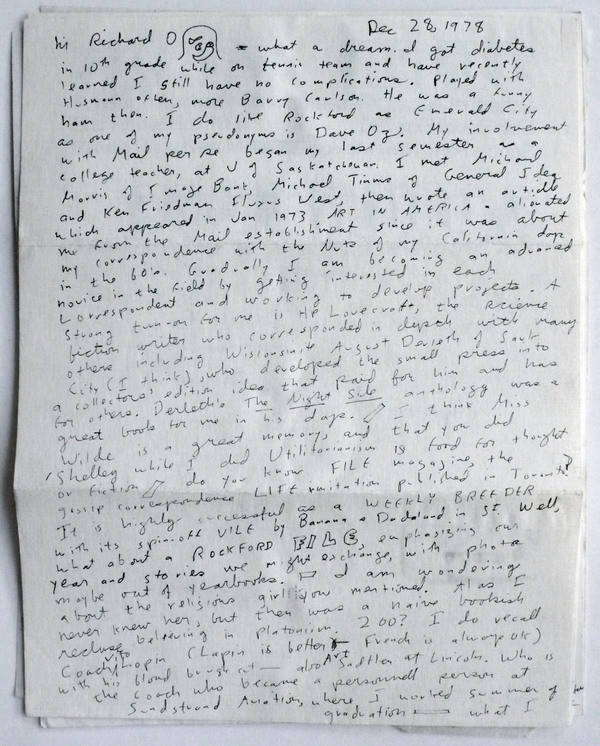 Dec 28, 1978
hi Richard O = what a dream. I got diabetes
in 10th grade while on tennis team and have recently
learned I still have no complications. Played with
Husmann often, more Barry Carlson. He was a funny
ham then. I do like Rockford as Emerald City
as one of my pseudonyms is Dave Oz. My involvement
with Mail per se began my last semester as a
college teacher, at U of Saskatchewan. I met Michael
Morris of Image Bank, Michael Tims of General Idea
and Ken Friedman Fluxus West, then wrote an article
which appeared in Jan 1973 ART IN AMERICA - alienated
me from the Mail establishment since it was about
my correspondence with the Nuts of my California days
in the 60's. Gradually I am becoming an advanced
novice in the field by getting interested in each
correspondent and working to develop projects. A
strong turn-on for me is HP Lovecraft, the science
fiction writer who corresponded in depth with many
others including Wisconsinite August Derleth of Sauk
City (I think), who developed the small press into
a collectors' edition idea that paid for him and has
for others. Derleth's The Night Side anthology was a
great book for me in his days. I think Miss
Wilde is a great memory, and that you did
Shelley while I did Utilitarianism is food for thought
or fiction do you know FILE magazine, the
gossip correspondence LIFE imitation published in Toronto?
It is highly successful as a WEEKLY BREEDER
with its spin-off VILE by Banana & Dadaland in SF. Well,
what about a ROCKFORD FILE, emphasizing our
year and stories we might exchange, with photos
maybe out of yearbooks. I am wondering
about the religious girl you mentioned. Alas I
never knew her, but then was a naive bookish
recluse believing in Platonism. 200? I do recall
Coach Lopin (Lapin is better French is always ok)
with his blond brush cut — also Art Sadtler at Lincoln. Who is
the coach who became a personnell person at
Sundstrand Aviation, where I worked summer of
graduation — what I